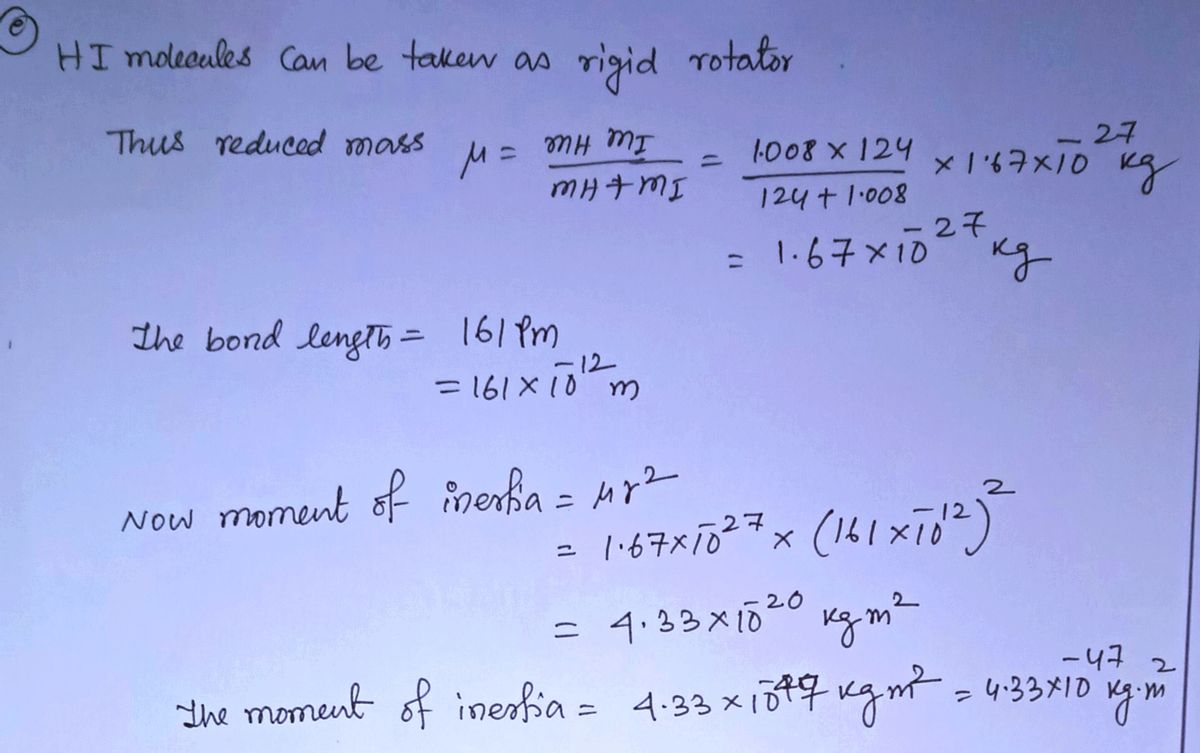 e
HI molecules can be taken as rigid rotator
Thus reduced mass μ = mH mI / mH + mI = 1.008 × 124 / 124 + 1.008 × 1.67×10⁻²⁷ kg
= 1.67×10⁻²⁷ kg
The bond length = 161 Pm
= 161 × 10⁻¹² m
Now moment of inertia = μr²
= 1.67×10⁻²⁷ × (161 ×10⁻¹²)²
= 4.33×10⁻²⁰ kg m²
The moment of inertia = 4.33 ×10⁻⁴⁷ kg m² = 4.33×10⁻⁴⁷ kg.m²